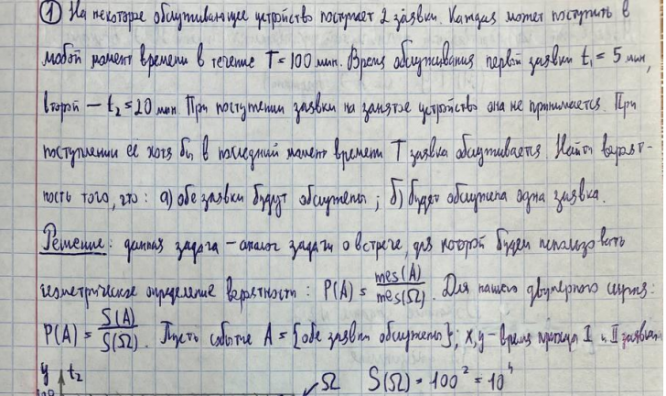 ① На некоторое обслуживающее устройство поступает 2 заявки. Каждая может поступить в
любой момент времени в течение T = 100 мин. Время обслуживания первой заявки t₁ = 5 мин,
второй – t₂ = 20 мин. При поступлении заявки на занятое устройство она не принимается. При
поступлении ее хотя бы в последний момент времени T заявка обслуживается. Найти вероят-
ность того, что: а) обе заявки будут обслужены; б) будет обслужена одна заявка.
Решение: данная задача – аналог задачи о встрече, для которой будем использовать
геометрическое определение вероятности: P(A) = mes(A)/mes(Ω). Для нашего двумерного случая:
P(A) = S(A)/S(Ω). Пусть событие A = {обе заявки обслужены}; x, y – время прихода I и II заявки
y t₂ Ω S(Ω) = 100² = 10⁴